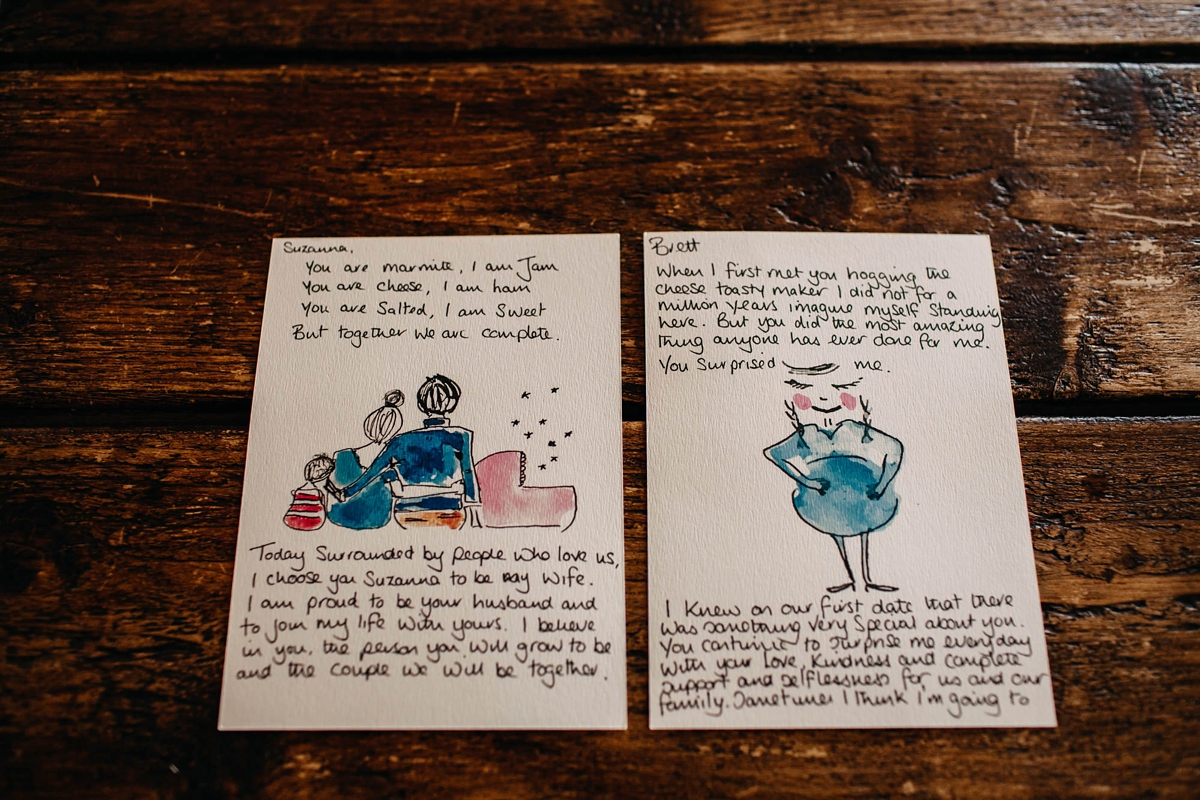 Suzanna,
You are marmite, I am Jam
You are cheese, I am ham
You are Salted, I am Sweet
But together we are complete.
Today Surrounded by people who love us,
I choose you Suzanna to be my wife.
I am proud to be your husband and
to join my life with yours. I believe
in you, the person you will grow to be
and the couple we will be together.
Brett
When I first met you hogging the
cheese toasty maker I did not for a
million years imagine myself standing
here. But you did the most amazing
thing anyone has ever done for me.
You Surprised me.
I knew on our first date that there
was something very special about you.
You continue to surprise me everyday
with your love, kindness and complete
support and selflessness for us and our
family. Sometimes I think I'm going to